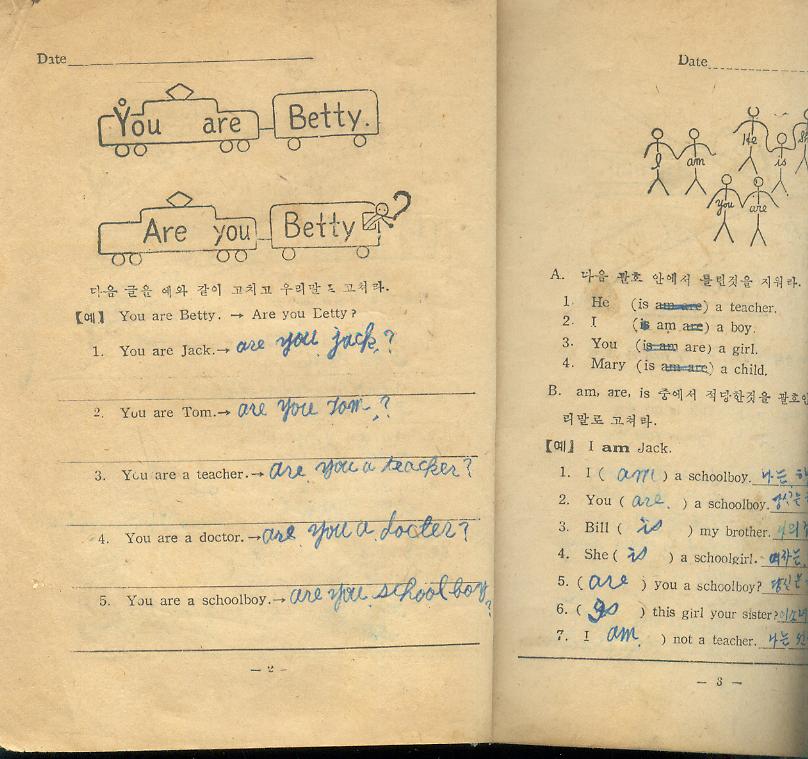 Date
You are Betty.
Are you Betty?
다음 글을 예와 같이 고치고 우리말로 고쳐라.
【예】 You are Betty. → Are you Betty?
1. You are Jack.→ are you jack?
2. You are Tom.→ are you Tom?
3. You are a teacher.→ are you a teacher?
4. You are a doctor.→ are you a docter?
5. You are a schoolboy.→ are you schoolboy?
— 2 —
Date
I am
He is
you are
A. 다음 괄호 안에서 틀린것을 지워라.
1. He (is am are) a teacher.
2. I (is am are) a boy.
3. You (is am are) a girl.
4. Mary (is am are) a child.
B. am, are, is 중에서 적당한것을 괄호안
리말로 고쳐라.
【예】 I am Jack.
1. I ( am ) a schoolboy. 나는
2. You ( are ) a schoolboy. 당신은
3. Bill ( is ) my brother.
4. She ( is ) a schoolgirl.
5. ( are ) you a schoolboy? 당신은
6. ( Is ) this girl your sister?
7. I am ) not a teacher. 나는
— 3 —